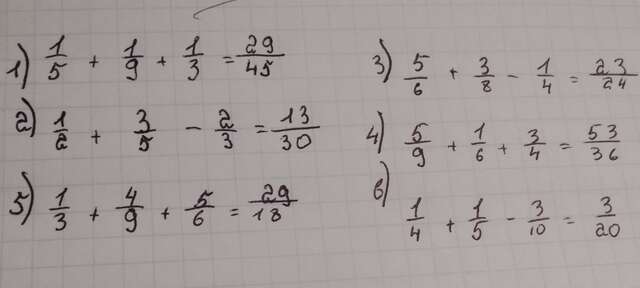 1) 1/5 + 1/9 + 1/3 = 29/45
2) 1/2 + 3/5 - 2/3 = 13/30
5) 1/3 + 4/9 + 5/6 = 29/18
3) 5/6 + 3/8 - 1/4 = 23/24
4) 5/9 + 1/6 + 3/4 = 53/36
6) 1/4 + 1/5 - 3/10 = 3/20